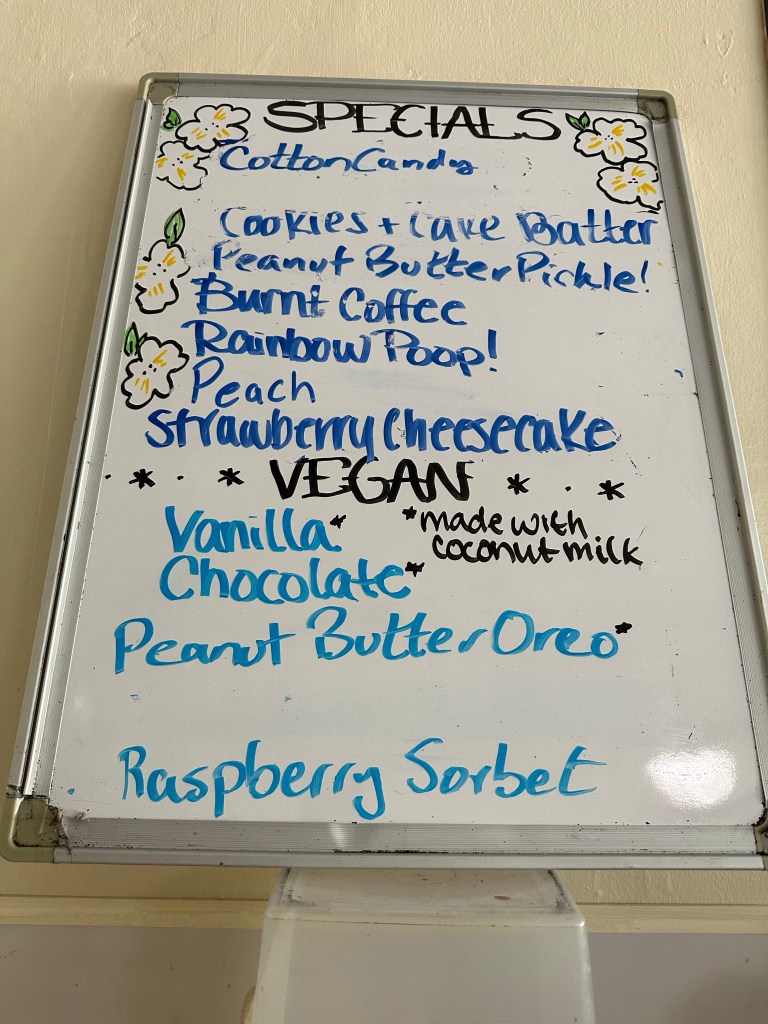 SPECIALS
Cotton Candy
Cookies + Cake Batter
Peanut Butter Pickle!
Burnt Coffee
Rainbow Poop!
Peach
Strawberry Cheesecake
* · * VEGAN * · *
Vanilla* *made with
coconut milk
Chocolate*
Peanut Butter Oreo*
Raspberry Sorbet